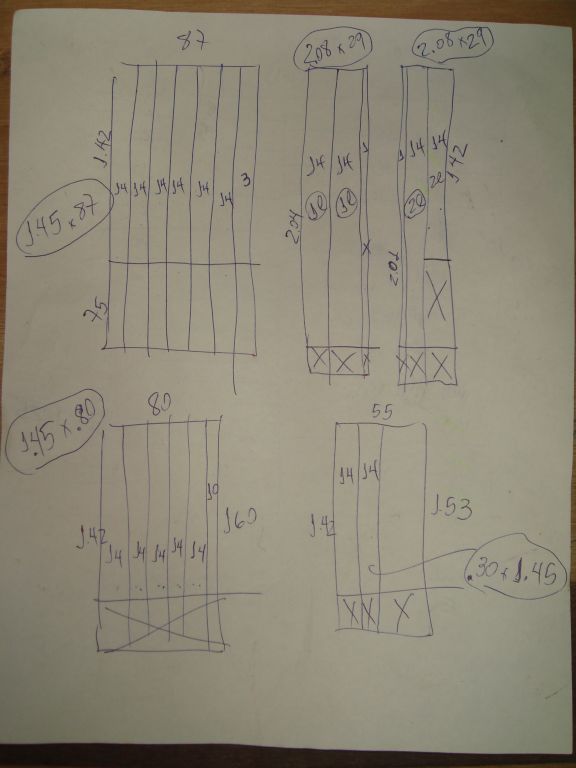 87
1.42
14 14 14 14 14 14 3
1.45 x 87
75
2.08 x 29
14 14 1
2.04
X
X X X
2.08 x 29
1 14 14
1.42
20
X
X X X
80
1.45 x .80
1.42
14 14 14 14 14 10
160
55
14 14
1.42
1.53
.30 x 1.45
X X X